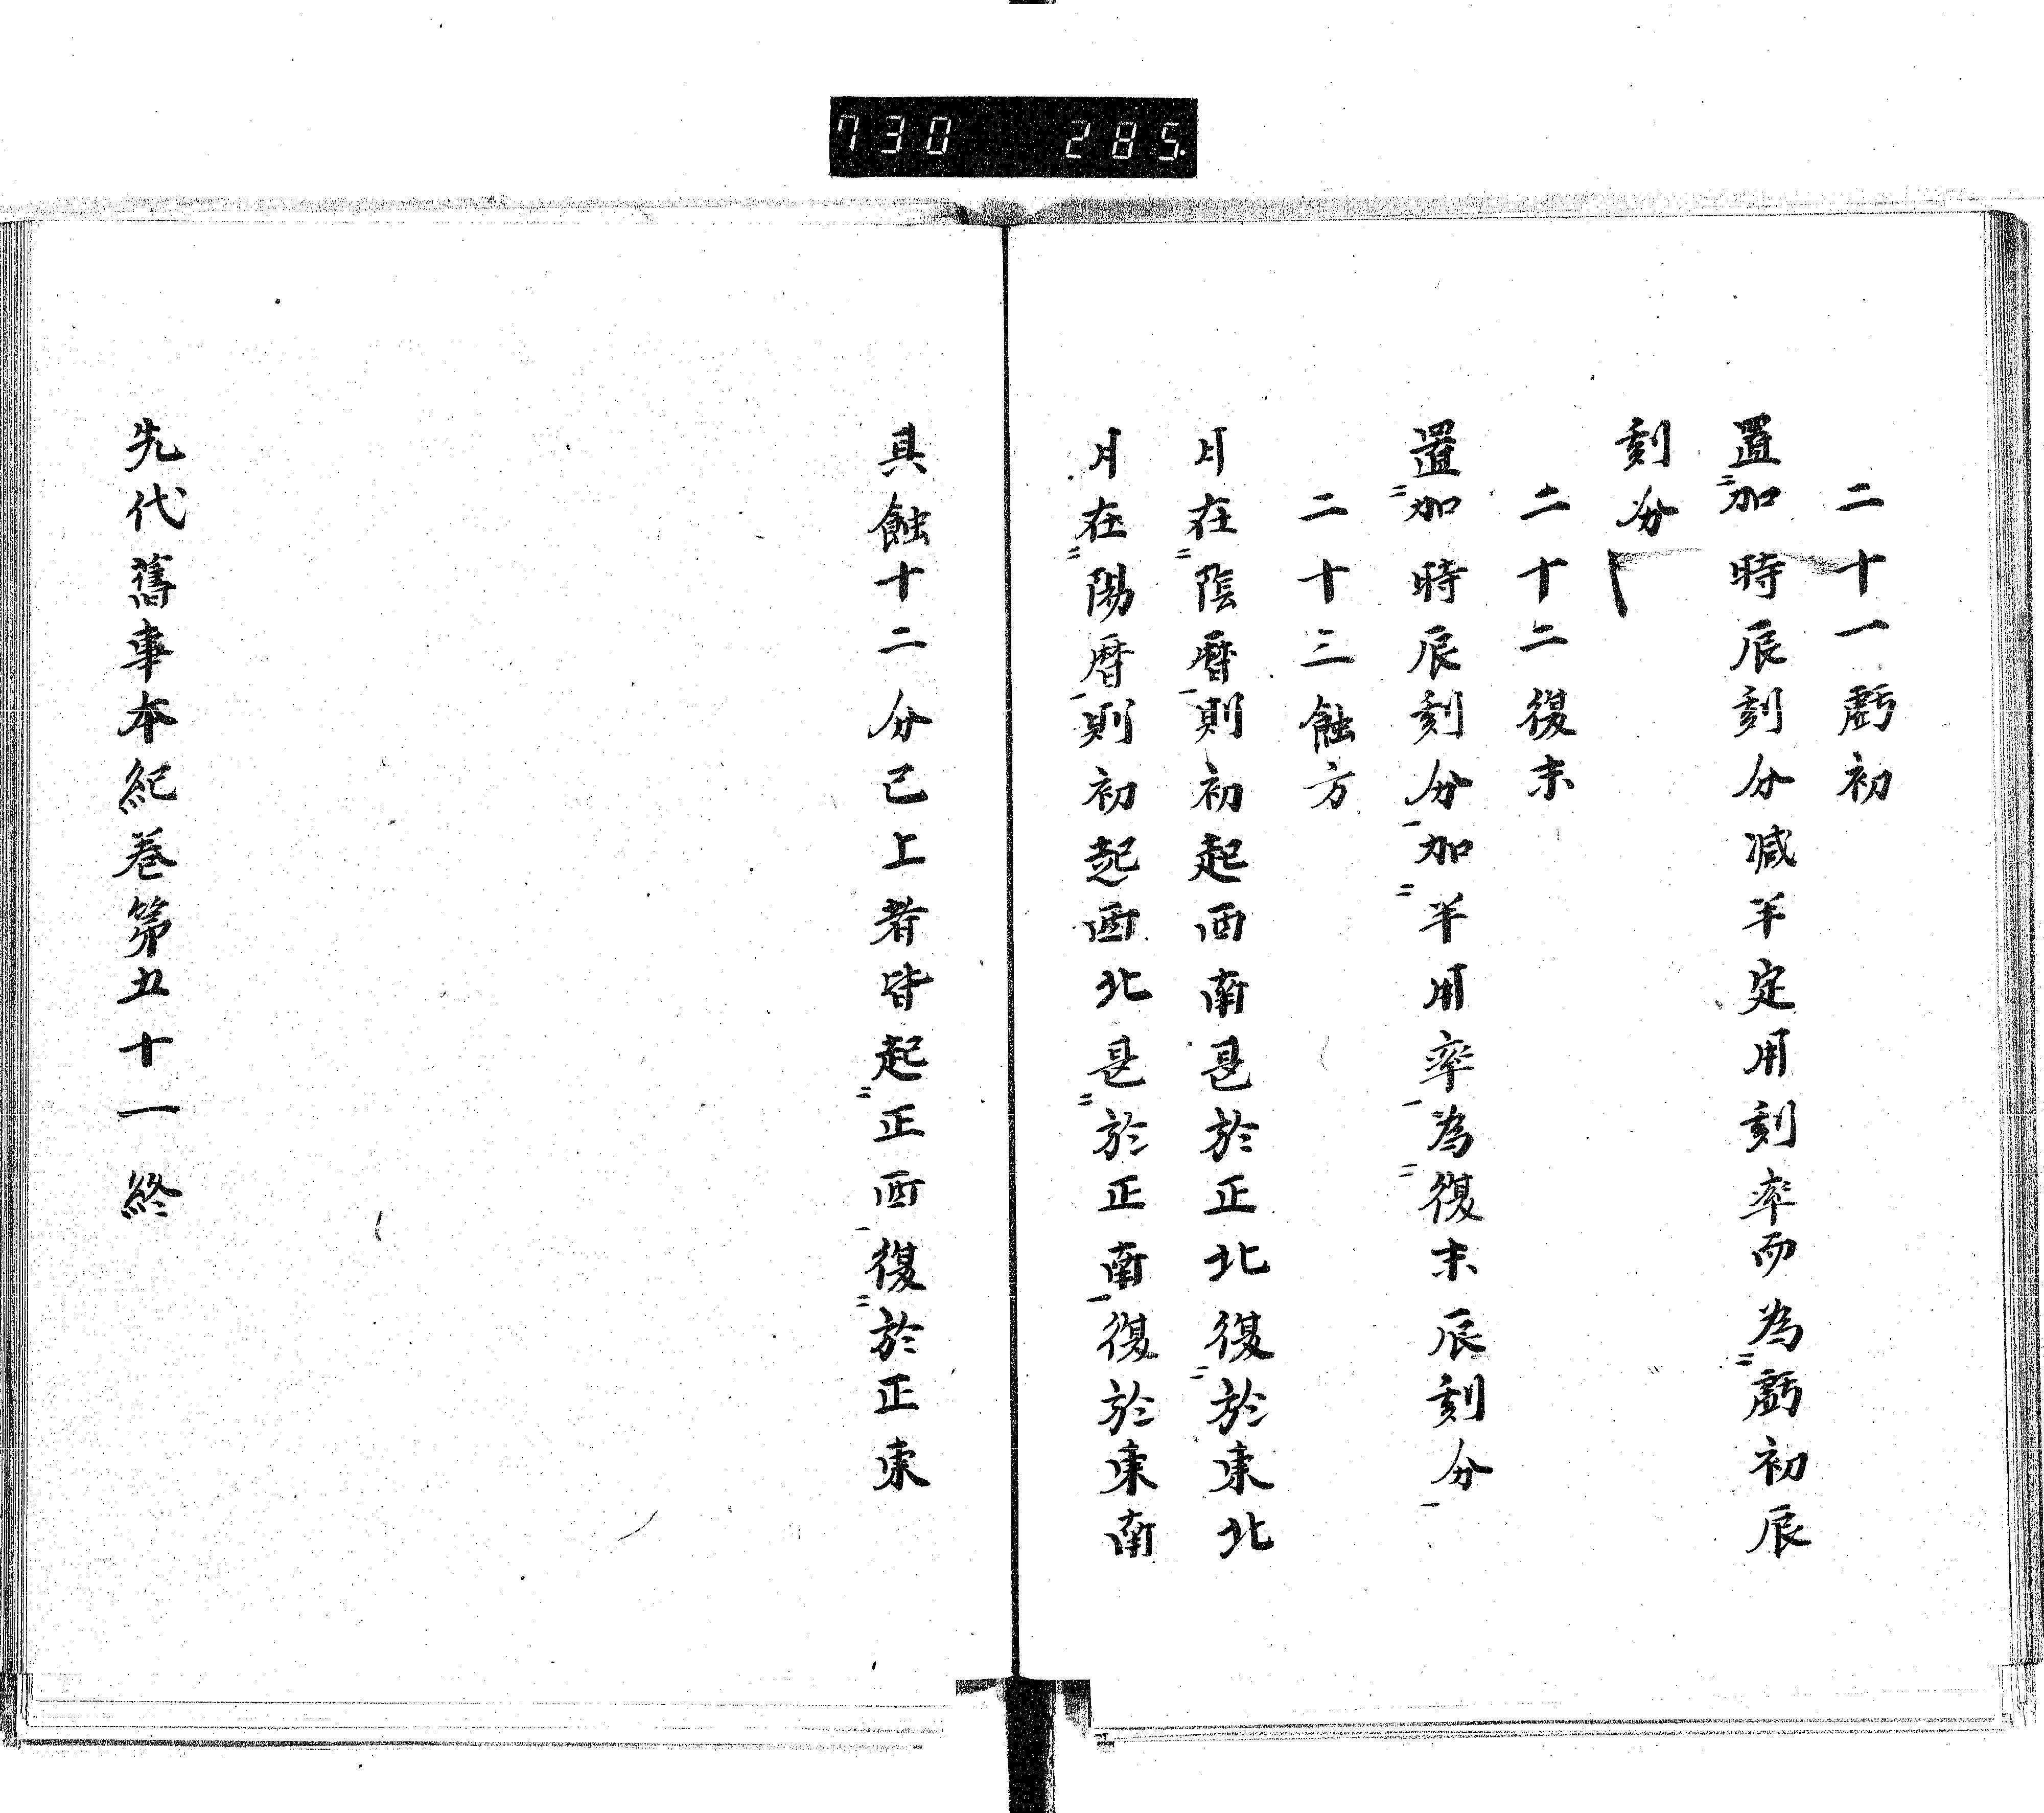 730 285.
二十一虧初
置加時辰刻分減半定用刻率而為虧初辰
刻分
二十二復末
置加時辰刻分加半用率為復末辰刻分
二十三蝕方
月在陰暦則初起西南甚於正北復於東北
月在陽暦則初起西北甚於正南復於東南
具蝕十二分已上者皆起正西復於正東
先代舊事本紀巻第五十一終